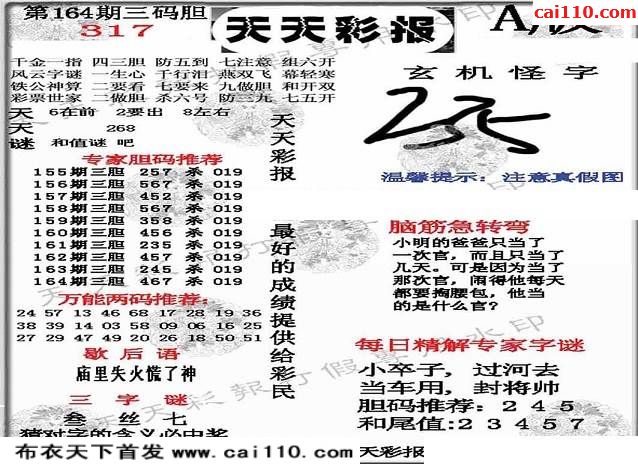 第164期三码胆
317
天天彩报
cai110.com
千金一指 四三胆 防五到 七注意 组六开
风云字谜 一生心 于行泪 燕双飞 幕轻寒
铁公神算 二要看 七要来 九做胆 和开双
彩票世家 二做胆 杀六号 防三九 七五开
天天谜
6在前 2要出 8左右
268
和值谜 吧
专家胆码推荐
155期三胆 257 杀 019
156期三胆 567 杀 019
157期三胆 452 杀 019
158期三胆 567 杀 019
159期三胆 358 杀 019
160期三胆 456 杀 019
161期三胆 235 杀 019
162期三胆 457 杀 019
163期三胆 245 杀 019
164期三胆 467 杀 019
万能两码推荐:
24 57 13 46 68 17 28 19 36
38 39 14 03 58 09 06 16 25
27 29 47 49 20 26 18 50 51
歇后语
庙里失火慌了神
三字谜
叁丝七
猜对字的含义必中奖
天天彩报
最好的成绩提供给彩民
玄机怪字
温馨提示:注意真假图
脑筋急转弯
小明的爸爸只当了
一次官,而且只当了
几天。可是因为当了
那次官,闹得他每天
都要掏腰包,他当
的是什么官?
每日精解专家字谜
小卒子,过河去
当车用,封将帅
胆码推荐:245
和尾值:23457
布衣天下首发 www.cai110.com
天彩报